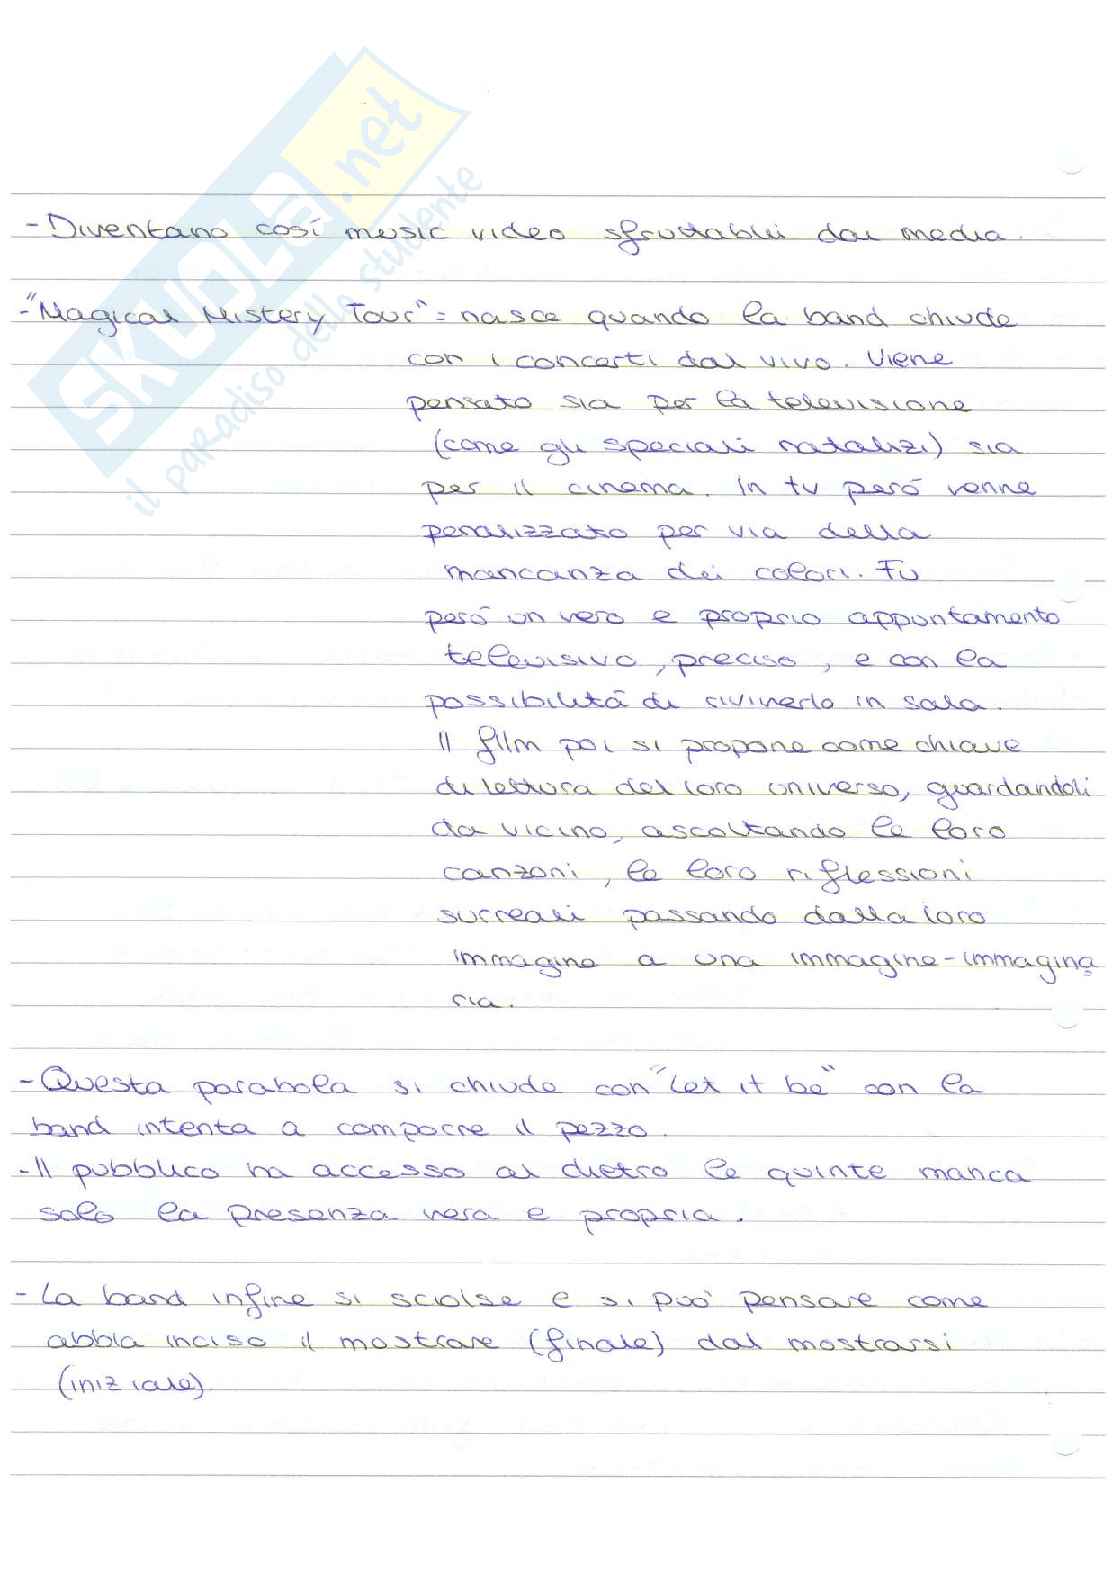 SKUOLA.net
il paradiso dello studente
- Diventano così music video sfruttabili dai media.
- "Magical Mistery Tour" = nasce quando la band chiude
con i concerti dal vivo. Viene
pensato sia per la televisione
(come gli speciali natalizi) sia
per il cinema. In tv però venne
penalizzato per via della
mancanza dei colori. Fu
però un vero e proprio appuntamento
televisivo, preciso, e con la
possibilità di rivivierlo in sala.
Il film poi si propone come chiave
di lettura del loro universo, guardandoli
da vicino, ascoltando le loro
canzoni, le loro riflessioni
surreali passando dalla loro
immagine a una immagine-immagina
ria.
- Questa parabola si chiude con "Let it be" con la
band intenta a comporre il pezzo.
- Il pubblico ha accesso al dietro le quinte manca
solo la presenza vera e propria.
- La band infine si sciolse e si può pensare come
abbia inciso il mostrare (finale) dal mostrarsi
(iniziale)